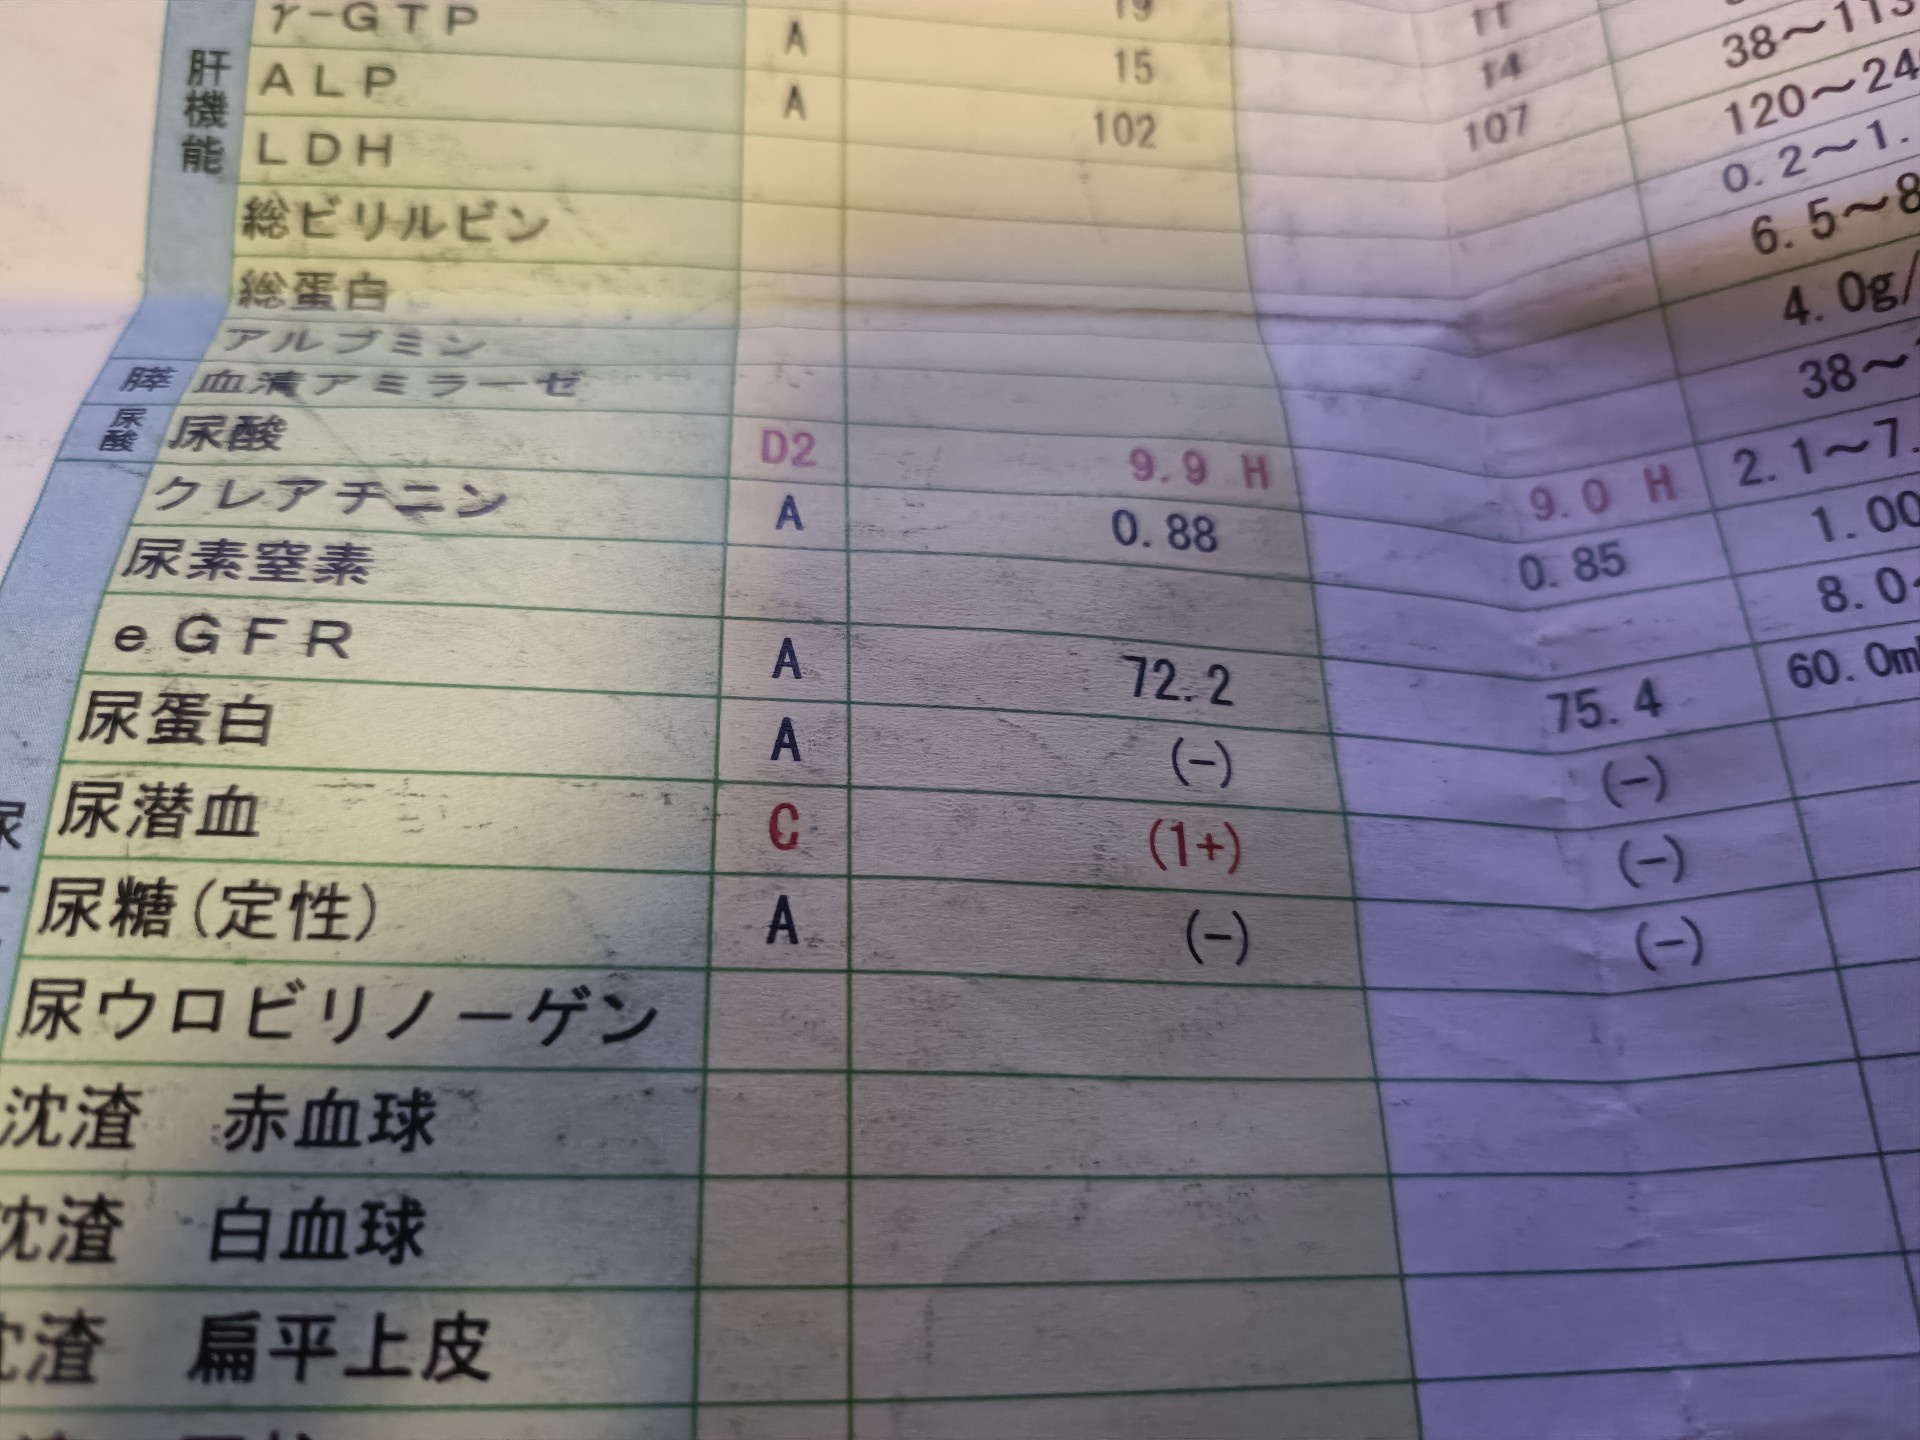 肝機能
γ-GTP A 19 11
ALP A 15 14 38～113
LDH 102 107 120～24
総ビリルビン 0.2～1.
総蛋白 6.5～8
アルブミン 4.0g/
膵 血清アミラーゼ 38～
尿酸 尿酸 D2 9.9 H 9.0 H 2.1～7.
クレアチニン A 0.88 0.85 1.00
尿素窒素 8.0
eGFR A 72.2 75.4 60.0m
尿蛋白 A (-) (-)
尿潜血 C (1+) (-)
尿糖(定性) A (-) (-)
尿ウロビリノーゲン
沈渣 赤血球
沈渣 白血球
沈渣 扁平上皮